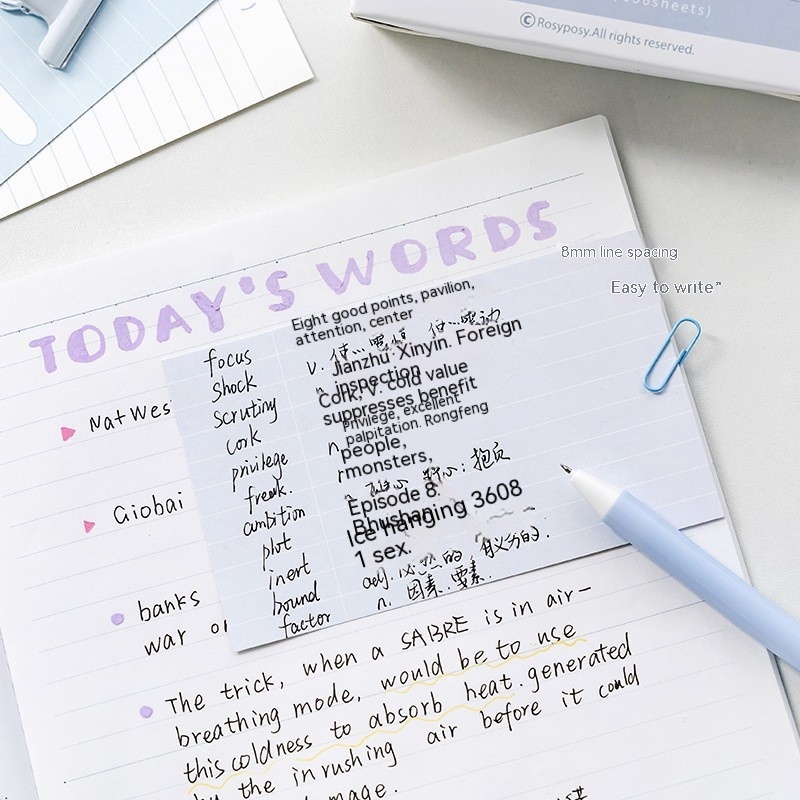 36sheets)
©Rosyposy.All rights reserved.
TODAY'S WORDS
8mm line spacing
Easy to write"
Eight good points, pavilion,
attention, center
focus
shock
Jianzhu. Xinyin. Foreign
inspection
Scrutiny
Cork, V. cold value
suppresses benefit
cork
privilege, excellent
palpitation. Rongfeng
privilege
people,
monsters,
freak.
ambition
Episode 8.
Bhushan
plot
Ice hanging 3608
1 sex.
inert
bound
adj. 必然的, 有义务的.
factor
n. 因素. 要素.
NatWes
Giobai
banks
war or
The trick, when a SABRE is in air-
breathing mode, would be to use
this coldness to absorb heat generated
by the inrushing air before it could
mage.